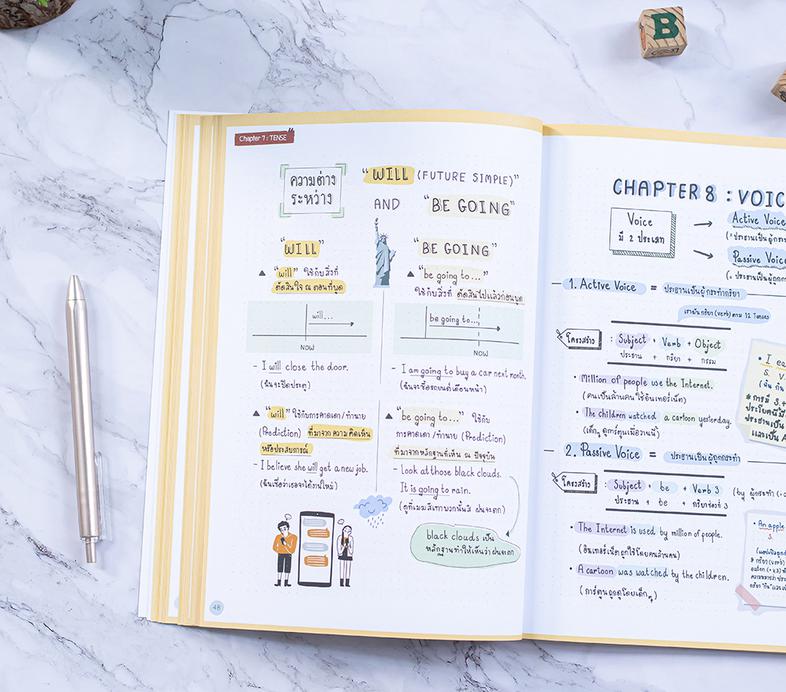 B
Chapter 7 : TENSE
ความต่าง
ระหว่าง
"WILL (FUTURE SIMPLE)"
AND "BE GOING"
"WILL"
▲ "will" ใช้กับสิ่งที่
ตัดสินใจ ณ ตอนที่พูด
will...
NOW
- I will close the door.
(ฉันจะปิดประตู)
▲ "will" ใช้กับการคาดเดา/ทำนาย
(Prediction) ที่มาจาก ความคิดเห็น
หรือประสบการณ์
- I believe she will get a new job.
(ฉันเชื่อว่าเธอจะได้งานใหม่)
"BE GOING"
▲ "be going to..."
ใช้กับสิ่งที่ ตัดสินไปแล้วก่อนพูด
be going to...
NOW
- I am going to buy a car next month.
(ฉันจะซื้อรถยนต์เดือนหน้า)
▲ "be going to..." ใช้กับ
การคาดเดา/ทำนาย (Prediction)
ที่มาจากหลักฐานที่เห็น ณ ปัจจุบัน
- Look at those black clouds.
It is going to rain.
(ดูที่เมฆสีเทาพวกนั้นสิ ฝนจะตก)
black clouds เป็น
หลักฐานทำให้เห็นว่าฝนตก
48
CHAPTER 8 : VOIC
Voice
มี 2 ประเภท
Active Voice
Passive Voic
1. Active Voice = ประธานเป็นผู้กระทำกริยา
เอามาผันกริยา (verb) ตาม 12 Tenses
โครงสร้าง : Subject + Verb + Object
ประธาน + กริยา + กรรม
• Million of people use the Internet.
(คนเป็นล้านคนใช้อินเทอร์เน็ต)
• The children watched a cartoon yesterday.
(เด็กๆ ดูการ์ตูนเมื่อวานนี้)
2. Passive Voice = ประธานเป็นผู้ถูกกระทำ
โครงสร้าง : Subject + be + Verb 3
ประธาน + be + กริยาช่องที่ 3
• The Internet is used by million of people.
(อินเทอร์เน็ตถูกใช้โดยคนล้านคน)
• A cartoon was watched by the children.
(การ์ตูนถูกดูโดยเด็กๆ)
• An apple